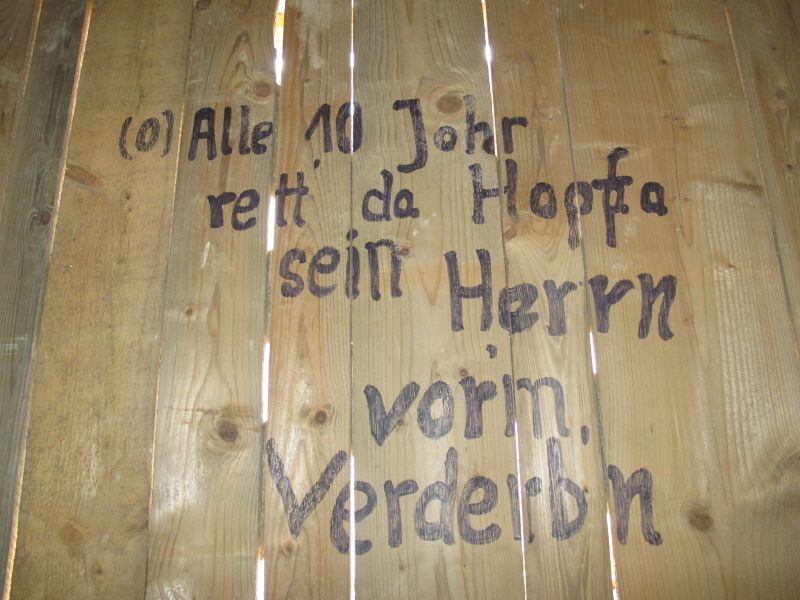 (o) Alle 10 Johr
rett' da Hopfa
sein Herrn
vor'm
Verderb'n